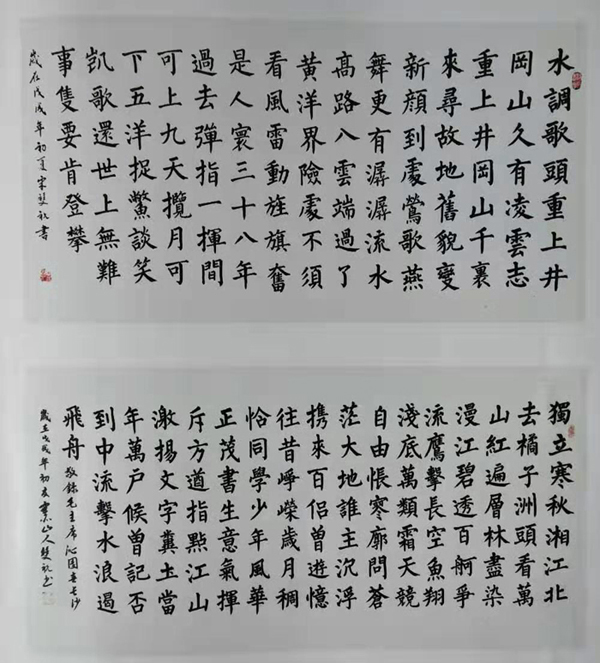 水調歌頭重上井
岡山久有凌雲志
重上井岡山千裏
來尋故地舊貌變
新顔到處鶯歌燕
舞更有潺潺流水
高路八雲端過了
黃洋界險處不須
看風雷動旌旗奮
是人寰三十八年
過去彈指一揮間
可上九天攬月可
下五洋捉鱉談笑
凱歌還世上無難
事隻要肯登攀
歲在戊戌年初夏宋書
獨立寒秋湘江北
去橘子洲頭看萬
山紅遍層林盡染
漫江碧透百舸爭
流鷹擊長空魚翔
淺底萬類霜天競
自由悵寒廓問蒼
茫大地誰主沉浮
携來百侶曾遊憶
往昔崢嶸歲月稠
恰同學少年風華
正茂書生意氣揮
斥方遒指點江山
激揚文字糞土當
年萬戶候曾記否
到中流擊水浪遏
飛舟 敬錄毛主席沁園春長沙
歲在戊戌年初夏